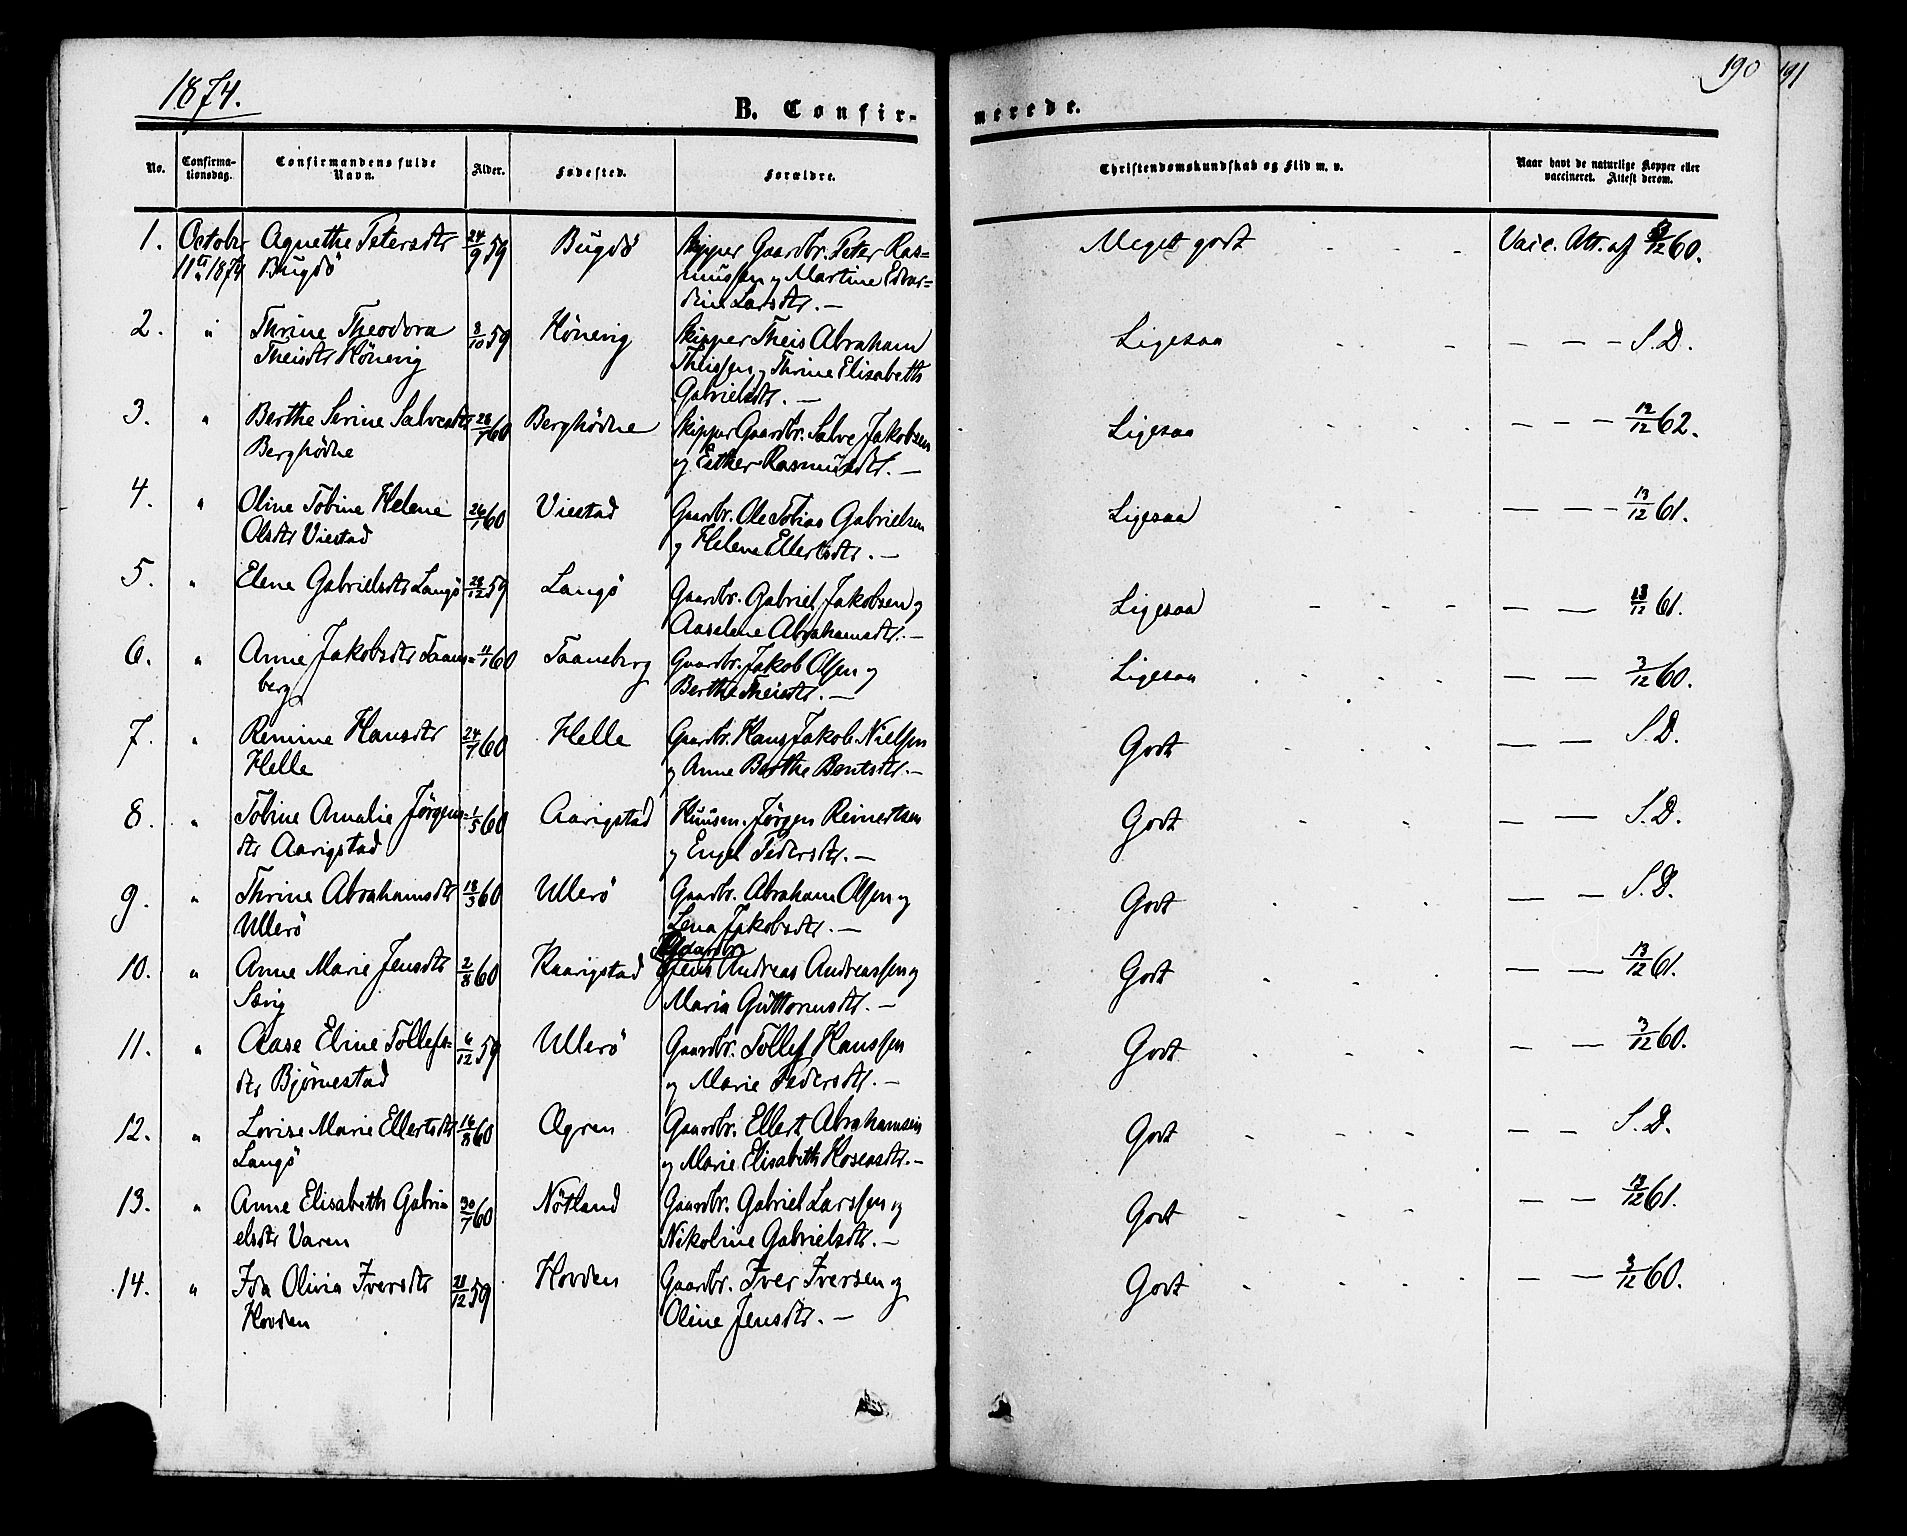 1874.
190
191
B. Confir-
merede.
No.
Confirma-
tionsdag.
Confirmandens fulde
Navn.
Alder.
Fødested.
Forældre.
Christendomskundskab og Flid m. v.
Naar havt de naturlige Kopper eller
vaccineret. Attest derom.
1. October Agnethe Petersdtr 24/9 59 Bugdö Skipper Gaardbr. Peter Ras= Meget godt Vacc. Att. af /12 60.
11te 1874 Bugdö mussen og Martine Edvar=
dine Larsdtr. —
2. " Thrine Theodora 8/10 59 Hönevig Skipper Theis Abraham Ligesaa — — — S.D.
Theisdtr Hönevig Theissen og Thrine Elisabeth
Gabrielsdtr. —
3. " Berthe Serine Salvesdtr 28/1 60 Berghödne Skipper Gaardbr. Salve Jakobsen Ligesaa — — — 12/12 62.
Berghödne og Esther Rasmusdtr. —
4. " Oline Tobine Helene 26/1 60 Viestad Gaardbr. Ole Tobias Gabrielsen Ligesaa — — — 13/12 61.
Olsdtr Viestad og Helene Ellertsdtr. —
5. " Elene Gabrielsdtr Langö 28/12 59 Langö Gaardbr. Gabriel Jakobsen og Ligesaa — — 13/12 61.
Aaselene Abrahamsdtr. —
6. " Anne Jakobsdtr Taans= 11/1 60 Taansberg Gaardbr. Jakob Olsen og Ligesaa — — 3/12 60.
berg Berthe Theisdtr. —
7. " Remine Hansdtr 24/1 60 Helle Gaardbr. Hans Jakob Nielsen Godt — — S.D.
Helle og Anne Berthe Berntsdtr. —
8. " Tobine Amalie Jörgens= 1/5 60 Aarigstad Huusm. Jörgen Reinertsen Godt — — S.D.
dtr Aarigstad og Engel Pedersdtr. —
9. " Thrine Abrahamsdtr 18/3 60 Ullerö Gaardbr. Abraham Olsen og Godt — — S.D.
Ullerö Lena Jakobsdtr. —
Gaardbr.
10. " Anne Marie Jensdtr 2/8 60 Kaarigstad Jens Andreas Andreassen og Godt — — 13/12 61.
Sævig Maria Guttormsdtr. —
11. " Aase Eline Tollefs= 6/12 59 Ullerö Gaardbr. Tollef Hanssen Godt — — 3/12 60.
dtr Bjørnestad og Marie Pedersdtr. —
12. " Lovise Marie Ellertsdtr 16/8 60 Ögren Gaardbr. Ellert Abrahamsen Godt — — S.D.
Langö og Marie Elisabeth Hoseasdtr. —
13. " Anne Elisabeth Gabri= 30/7 60 Nötland Gaardbr. Gabriel Larssen og Godt — — 13/12 61.
elsdtr Varen Nikoline Gabrielsdtr. —
14. " Ida Olivia Iversdtr 28/12 59 Hovden Gaardbr. Iver Iversen og Godt — — 3/12 60.
Hovden Oline Jensdtr. —